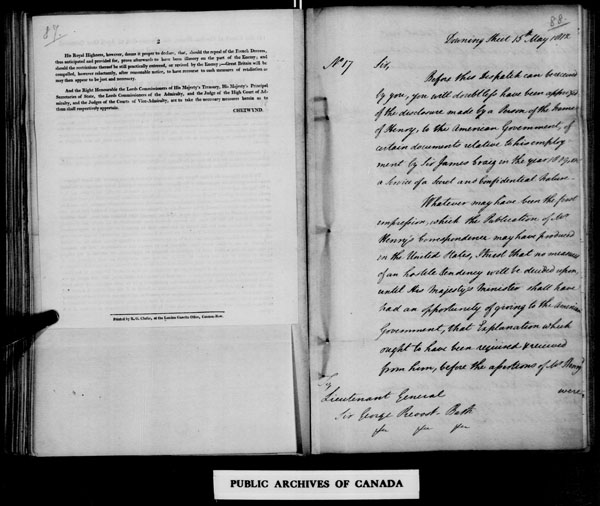 87.
2
His Royal Highness, however, deems it proper to declare, that, should the repeal of the French Decrees,
thus anticipated and provided for, prove afterwards to have been illusory on the part of the Enemy; and
should the restrictions thereof be still practically enforced, or revived by the Enemy;—Great Britain will be
compelled, however reluctantly, after reasonable notice, to have recourse to such measures of retaliation as
may then appear to be just and necessary.
And the Right Honourable the Lords Commissioners of His Majesty's Treasury, His Majesty's Principal
Secretaries of State, the Lords Commissioners of the Admiralty, and the Judge of the High Court of Ad-
miralty, and the Judges of the Courts of Vice-Admiralty, are to take the necessary measures herein as to
them shall respectively appertain.
CHETWYND.
Printed by R. G. Clarke, at the London Gazette Office, Cannon-Row.
88.
Downing Street 15th May 1812.
No 17
Sir,
Before this Dispatch can be received
by you, you will doubtless have been apprized
of the disclosure made by a Person of the Name
of Henry, to the American Government, of
certain documents relative to his employ
ment by Sir James Craig in the year 1809, on
a Service of a Secret and Confidential Nature.
Whatever may have been the first
impression, which the Publication of Mr
Henry's Correspondence may have produced
in the United States, I trust that no measures
of an hostile tendency will be decided upon,
until His Majesty's Minister shall have
had an opportunity of giving to the American
Government, that Explanation which
ought to have been required & received
from him, before the assertions of Mr Henry
were,
Lieutenant General
Sir George Prevost Bart
&c &c &c
PUBLIC ARCHIVES OF CANADA